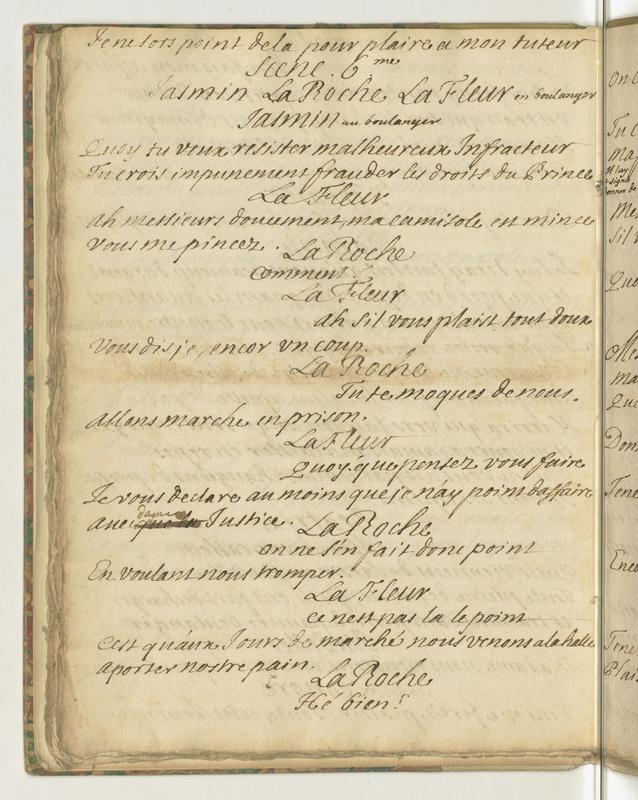 Je ne sors point de la pour plaire a mon tuteur
Scene. 6me
Jasmin LaRoche LaFleur en boulanger
Jasmin au boulanger
Quoy tu veux resister malheureux Infracteur
Tu crois impunement frauder les droits du Prince
LaFleur
ah messieurs doucement, ma camisole est mince
vous me pincez.
LaRoche
comment?
LaFleur
ah sil vous plaist tout doux
vous dis je, encor vn coup.
LaRoche
Tu te moques de nous.
allons marche en prison.
LaFleur
Quoy, que pensez vous faire
Je vous declare au moins que je n'ay point d'affaire
dame
avec Justice.
LaRoche
on ne s'en fait donc point
En voulant nous tromper.
LaFleur
ce nest pas la le point
cest qu'aux Jours de marché nous venons a la halle
aporter nostre pain.
LaRoche
Hé bien?
On
Tu
Ma
Il lay
Me
Sil v
Quo
Mes
Ma
Que
Don
Tene
Enco
Tene
Plai